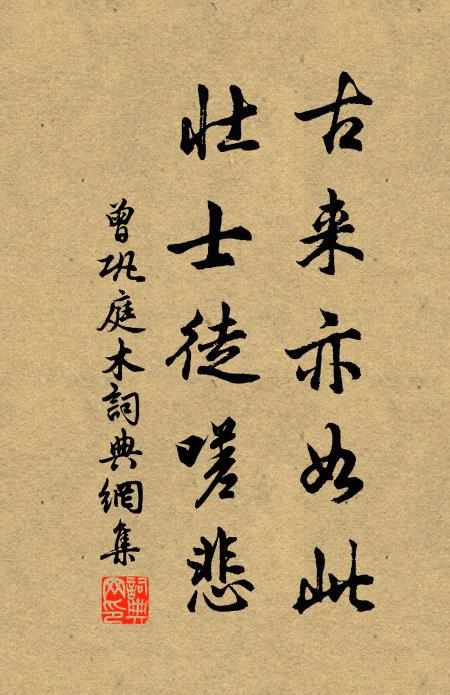 古来亦如此
壮士徒嗟悲
曾巩庭木詞典網集
詞典网印